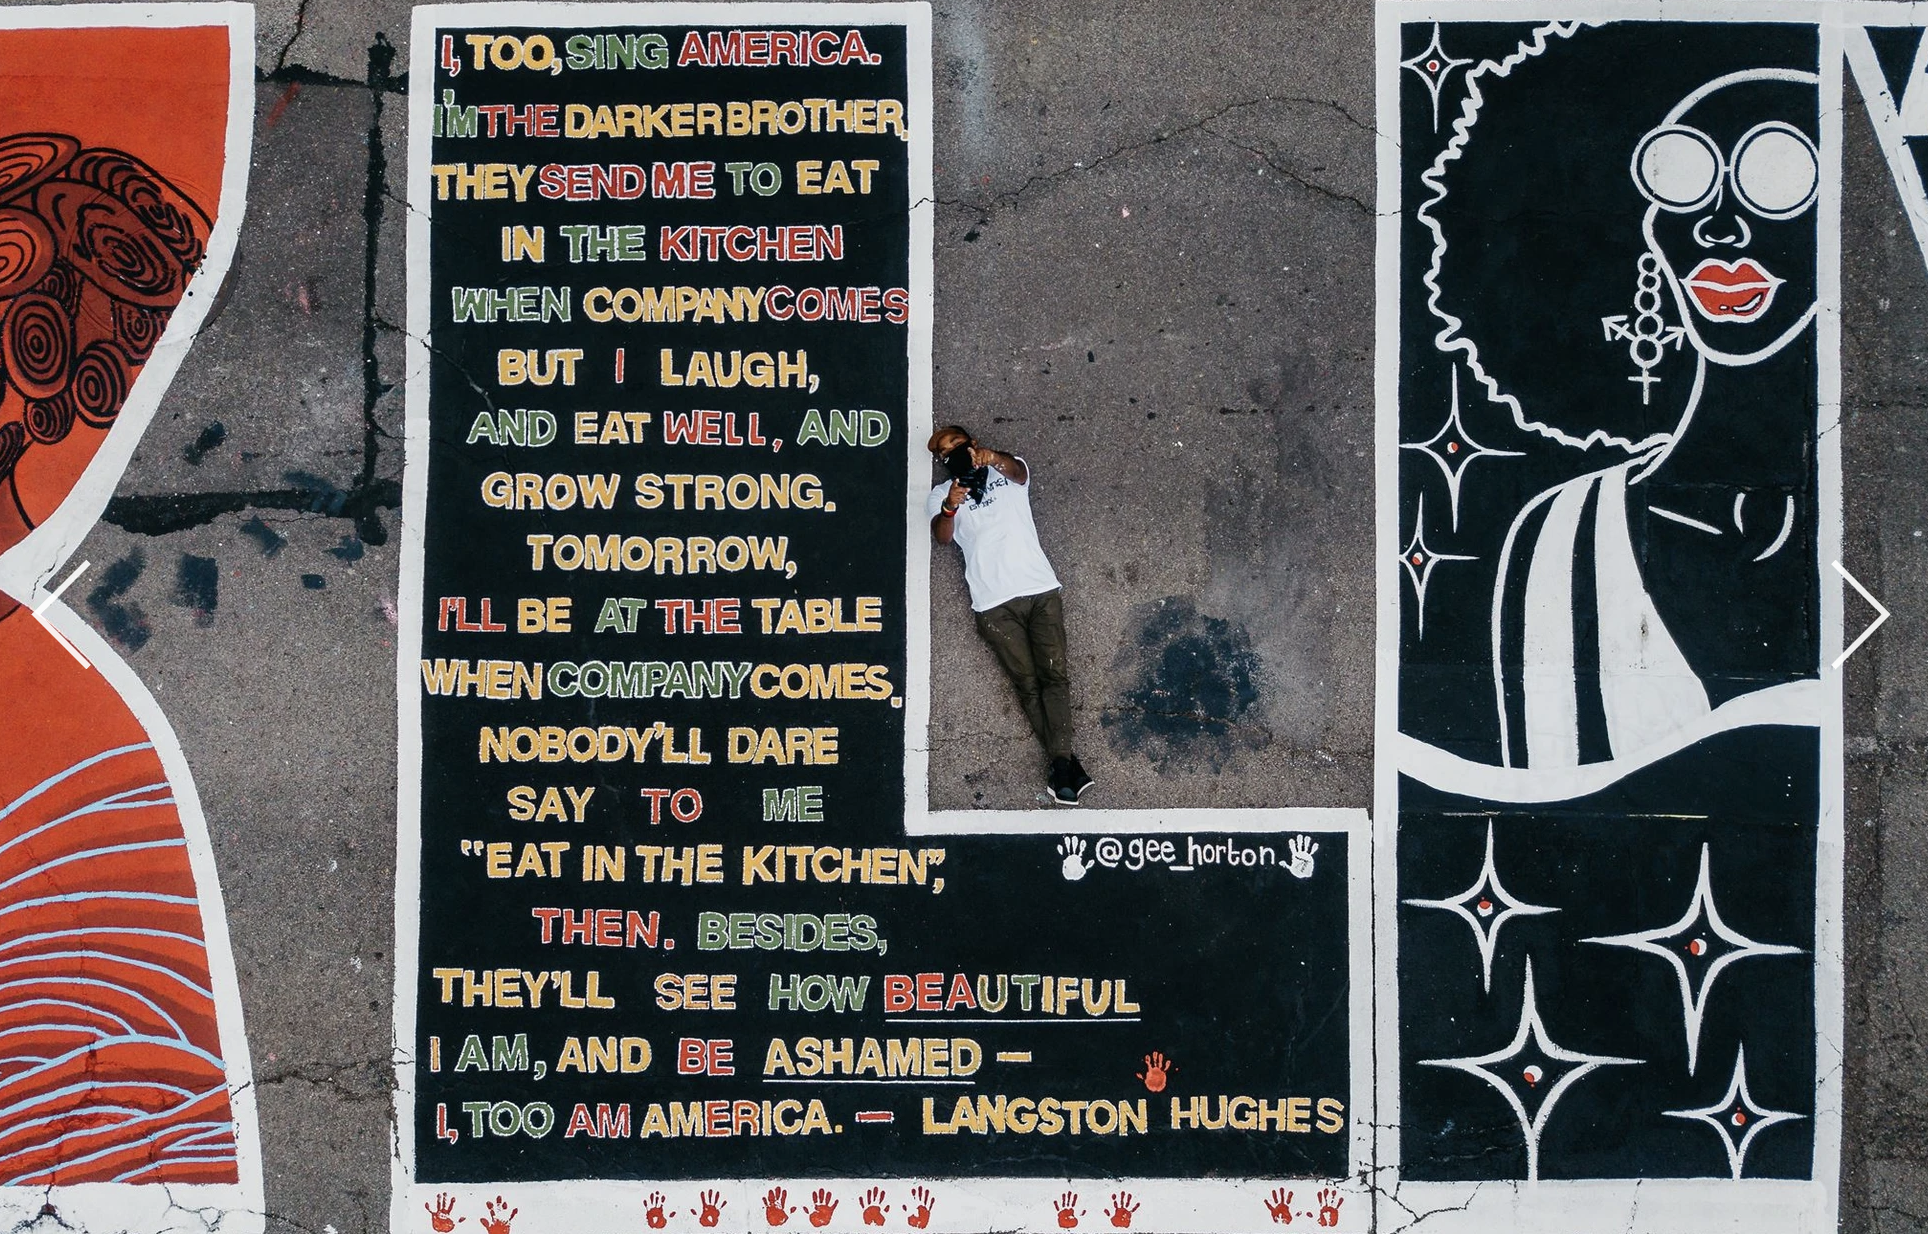 I, TOO, SING AMERICA.
I'M THE DARKER BROTHER,
THEY SEND ME TO EAT
IN THE KITCHEN
WHEN COMPANY COMES
BUT I LAUGH,
AND EAT WELL, AND
GROW STRONG.
TOMORROW,
I'LL BE AT THE TABLE
WHEN COMPANY COMES.
NOBODY'LL DARE
SAY TO ME
"EAT IN THE KITCHEN",
THEN. BESIDES,
THEY'LL SEE HOW BEAUTIFUL
I AM, AND BE ASHAMED —
I, TOO AM AMERICA. — LANGSTON HUGHES
@gee_horton